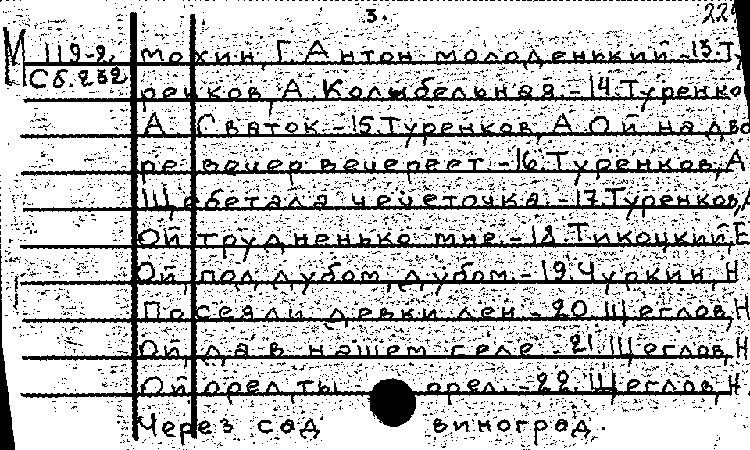 3.
М 119-2, мохин, Г. Антон молоденький.-13.Ту
Сб.252 ренков, А. Колыбельная.-14.Туренко
А. Святок.-15.Туренков, А. Ой на дво
ре вечер вечереет.-16.Туренков, А
Щебетала чечеточка.-17.Туренков, А
Ой трудненько мне.-18.Тикоцкий, Е
Ой, под дубом, дубом.-19.Чуркин, Н
Посеяли девки лен.-20.Щеглов, Н
Ой, да в нашем селе.-21.Щеглов, Н
Ой орел, ты - орел.-22.Щеглов, Н
Через сад виноград.